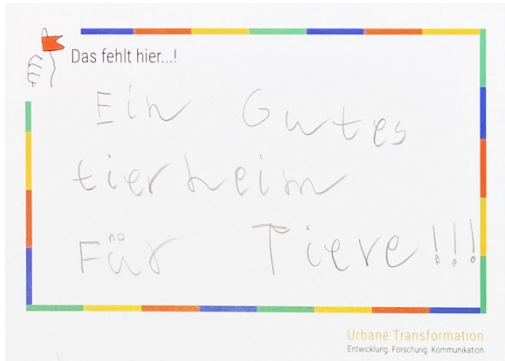 Das fehlt hier...!
Ein Gutes
tierheim
Für Tiere!!!
Urbane Transformation
Entwicklung. Forschung. Kommunikation.